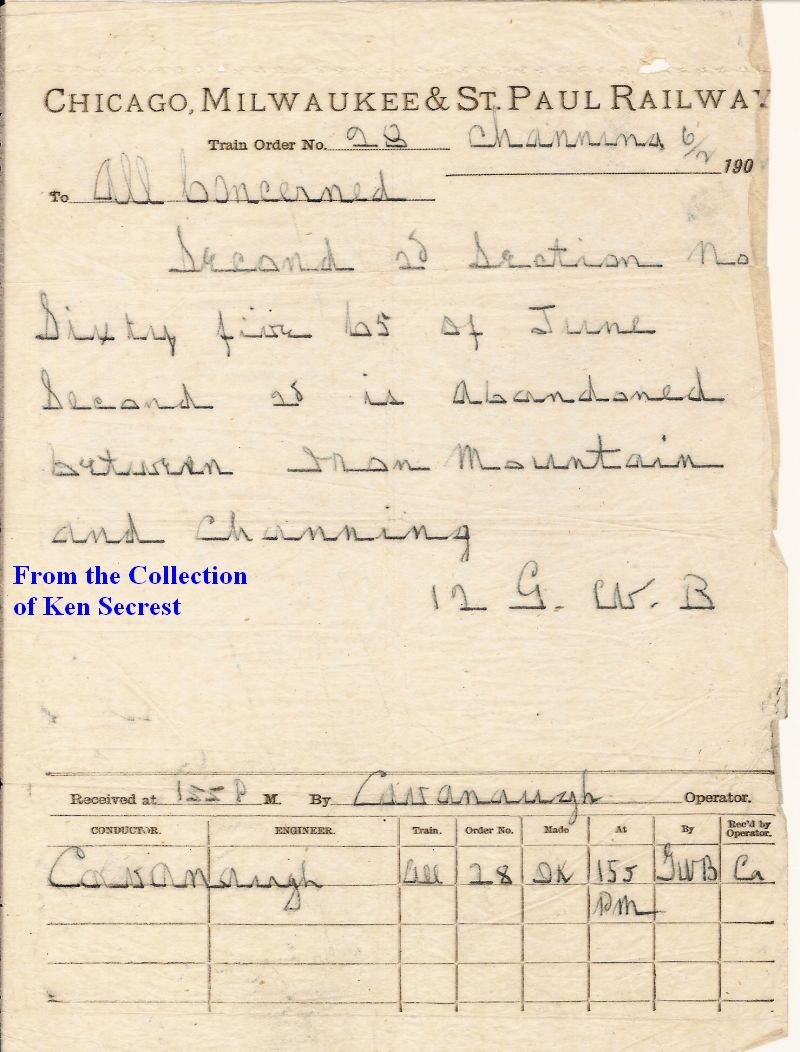 CHICAGO, MILWAUKEE & ST. PAUL RAILWAY
Train Order No. 28 Channing 6/2 190
To All Concerned
Second 2d Section No
Sixty five 65 of June
Second 2d is abandoned
between Iron Mountain
and Channing
From the Collection
of Ken Secrest
12 G. W. B
Received at 155 P M. By Cavanaugh Operator.
CONDUCTOR. ENGINEER. Train. Order No. Made At By Rec'd by Operator.
Cavanaugh All 28 OK 155 PM GWB Ca